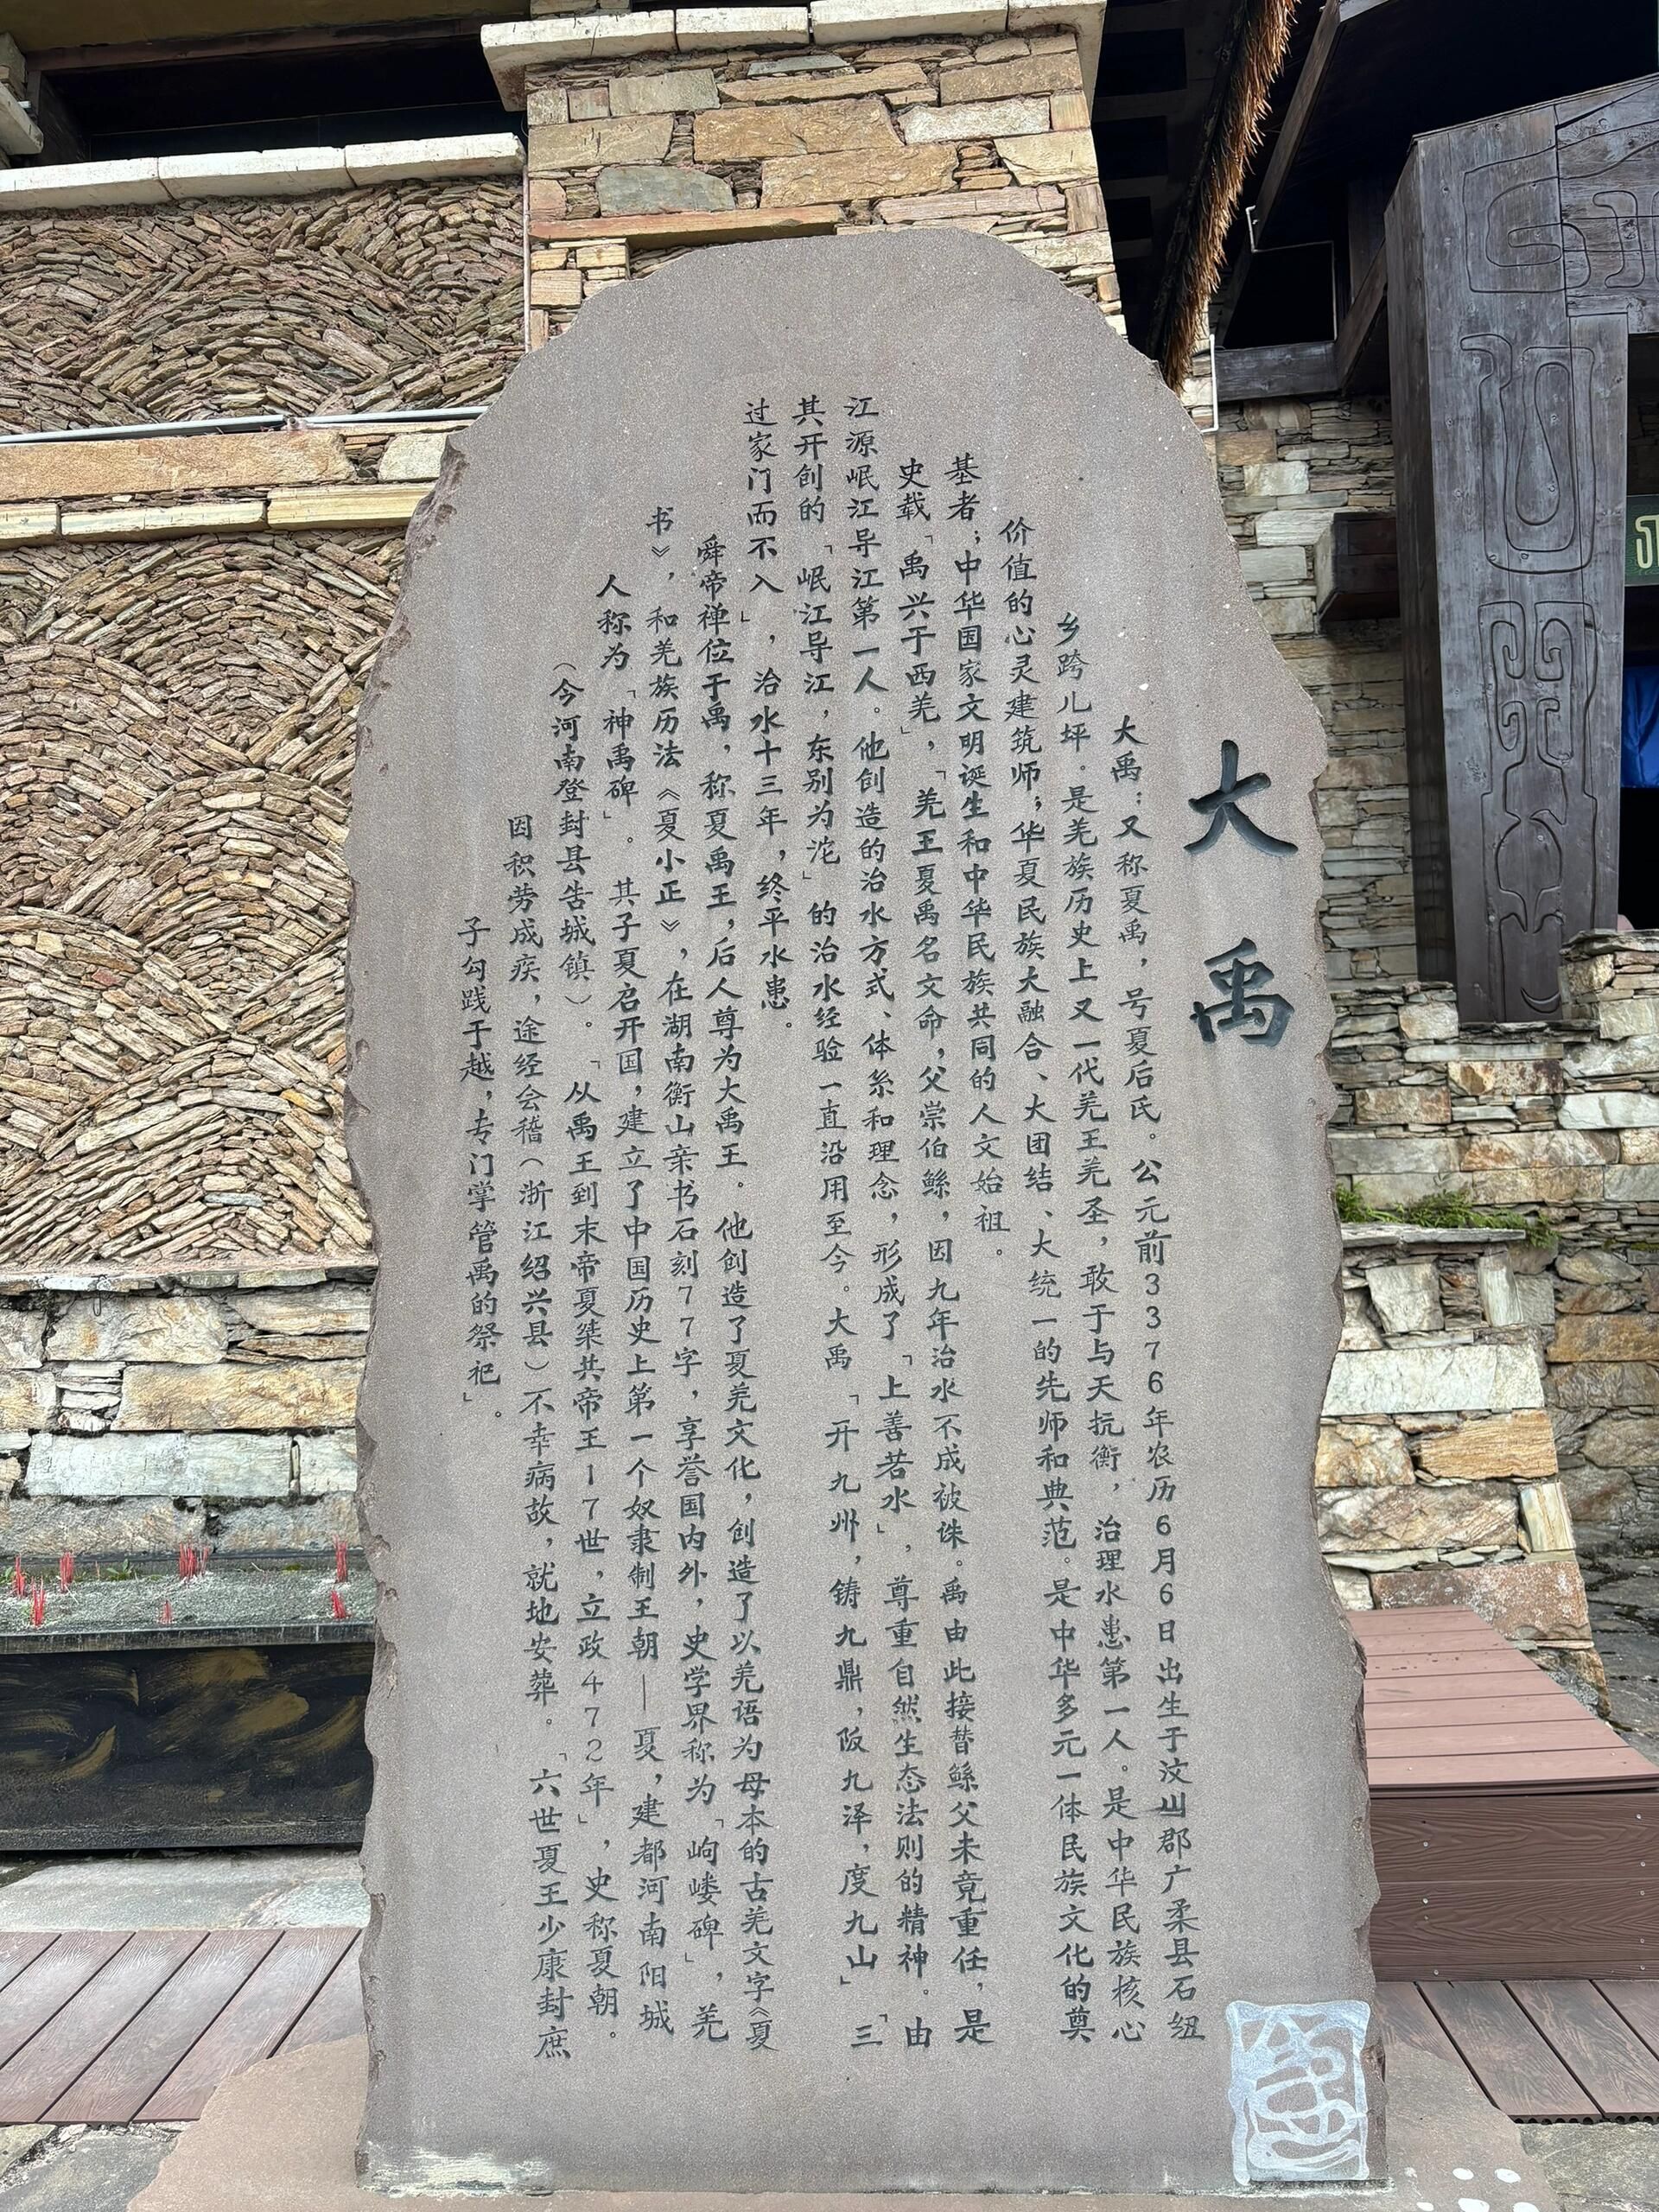 大禹
大禹：又称夏禹，号夏后氏。公元前3376年农历6月6日出生于汶山郡广柔县石纽
乡跨儿坪。是羌族历史上又一代羌王羌圣，敢于与天抗衡，治理水患第一人。是中华民族核心
价值的心灵建筑师；华夏民族大融合、大团结、大统一的先师和典范。是中华多元一体民族文化的奠
基者；中华国家文明诞生和中华民族共同的人文始祖。
史载「禹兴于西羌」，「羌王夏禹名文命，父崇伯鲧，因九年治水不成被诛。禹由此接替鲧父未竟重任，是
江源岷江导江第一人。他创造的治水方式、体系和理念，形成了「上善若水」，尊重自然生态法则的精神。由
其开创的「岷江导江，东别为沱」的治水经验一直沿用至今。大禹「开九州，铸九鼎，陂九泽，度九山」「三
过家门而不入」，治水十三年，终平水患。
舜帝禅位于禹，称夏禹王，后人尊为大禹王。他创造了夏羌文化，创造了以羌语为母本的古羌文字《夏
书》，和羌族历法《夏小正》，在湖南衡山亲书石刻77字，享誉国内外，史学界称为「岣嵝碑」，羌
人称为「神禹碑」。其子夏启开国，建立了中国历史上第一个奴隶制王朝—夏，建都河南阳城
（今河南登封县告城镇）。「从禹王到末帝夏桀共帝王17世，立政472年」，史称夏朝。
因积劳成疾，途经会稽（浙江绍兴县）不幸病故，就地安葬。「六世夏王少康封庶
子勾践于越，专门掌管禹的祭祀」。